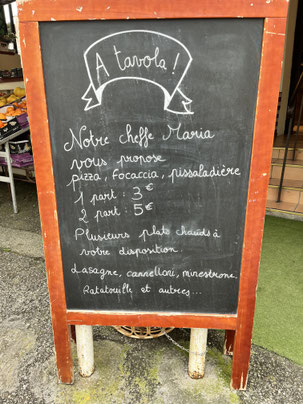 A tavola !
Notre cheffe Maria
vous propose
pizza, focaccia, pissaladière
1 part : 3€
2 part : 5€
Plusieurs plats chauds à
votre disposition.
Lasagne, cannelloni, minestrone.
Ratatouille et autres...